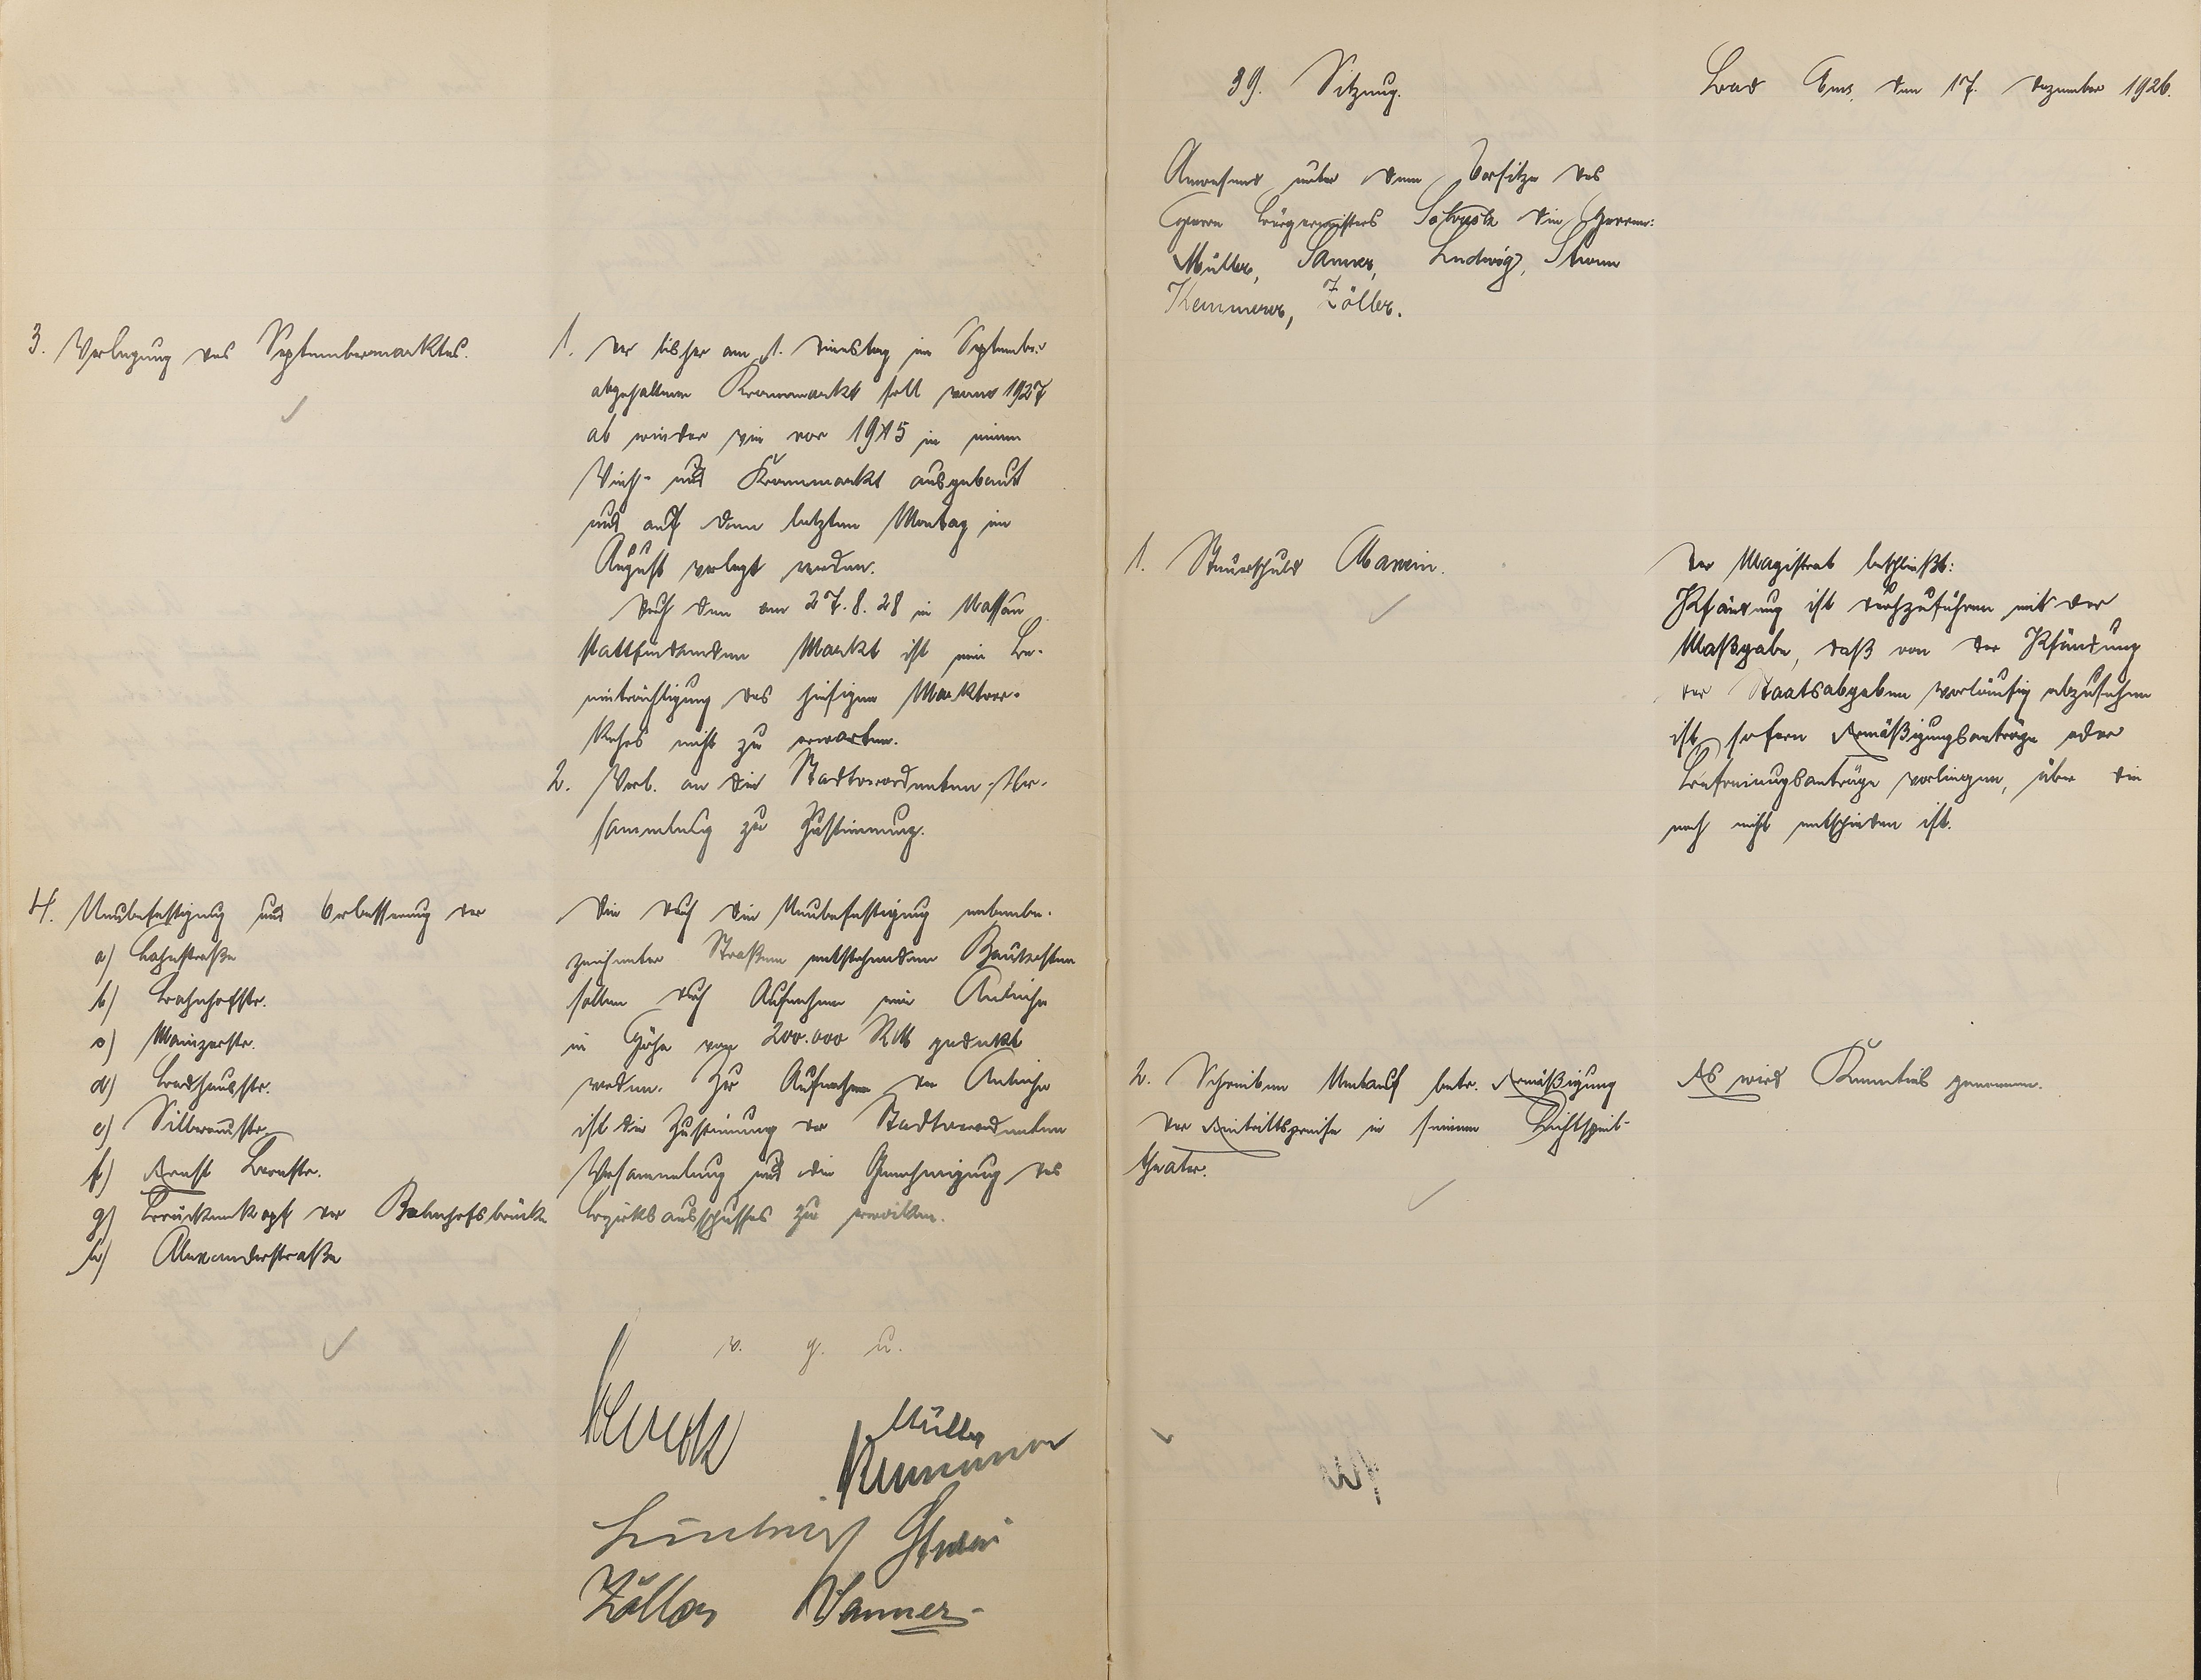 3. Verlegung des Septembermarktes.
1. Der bisher am 1. Dienstag im September
abgehaltene Krammarkt soll vom 1927
ab wieder wie vor 1915 in einen
Vieh- und Krammarkt ausgebaut
und auf den letzten Montag im
August verlegt werden.
Durch den am 27.8.28 in Nassau
stattfindenden Markt ist eine Be-
einträchtigung des hiesigen Marktver-
kehrs nicht zu erwarten.
2. Vorl. an die Stadtverordneten-Ver-
sammlung zur Zustimmung.
4. Neubefestigung und Verbesserung der
a) Lahnstraße
b) Bahnhofstr.
c) Mainzerstr.
d) Badhausstr.
e) Silberaustr.
f) Ernst Bornstr.
g) Brückenkopf der Bahnhofsbrücke
h) Alexanderstraße
Die durch die Neubefestigung nebenbe-
zeichneter Straßen entstehenden Baukosten
sollen durch Aufnahme einer Anleihe
in Höhe von 200.000 RM gedeckt
werden. Zur Aufnahme der Anleihe
ist die Zustimmung der Stadtverordneten
Versammlung und die Genehmigung des
Bezirksausschusses zu erwirken.
v. g. u.
Müller
Kemmerer
Ludwig
Zöller Sanner
39. Sitzung.
Bad Ems, den 17. Dezember 1926.
Anwesend unter dem Vorsitze des
Herrn Bürgermeisters die Herren:
Müller, Sanner, Ludwig, Thorn
Kemmerer, Zöller.
1. Steuerschuld
Der Magistrat beschließt:
Pfändung ist durchzuführen mit der
Maßgabe, daß von der Pfändung
der Staatsabgaben vorläufig abzusehen
ist, sofern Ermäßigungsanträge oder
Befreiungsanträge vorliegen, über die
noch nicht entschieden ist.
2. Schreiben betr. Ermäßigung
der Eintrittspreise in seinem Lichtspiel-
theater.
Es wird Kenntnis genommen.